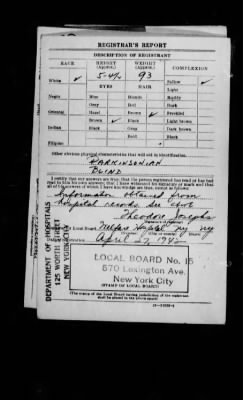 REGISTRAR'S REPORT
DESCRIPTION OF REGISTRANT
RACE HEIGHT (Approx.) WEIGHT (Approx.) COMPLEXION
White ✓ 5-4½ 93 Sallow ✓
EYES HAIR Light
Negro Blue Blonde Ruddy
Gray Red Dark
Oriental Hazel Brown ✓ Freckled
Brown ✓ Black Light brown
Indian Black Gray Dark brown
Bald Black
Filipino
Other obvious physical characteristics that will aid in identification
PARKINSONIAN
BLIND
I certify that my answers are true; that the person registered has read or has had
read to him his own answers; that I have witnessed his signature or mark and that
all of his answers of which I have knowledge are true, except as follows:
Information obtained from
hospital records
Theodore Josephs
Registrar for Local Board
April 27, 1942
DEPARTMENT OF HOSPITALS
125 WORTH STREET
NEW YORK CITY
LOCAL BOARD No. 15
570 Lexington Ave.
New York City
(STAMP OF LOCAL BOARD)
(The stamp of the Local Board having jurisdiction of the registrant
shall be placed in the above space)